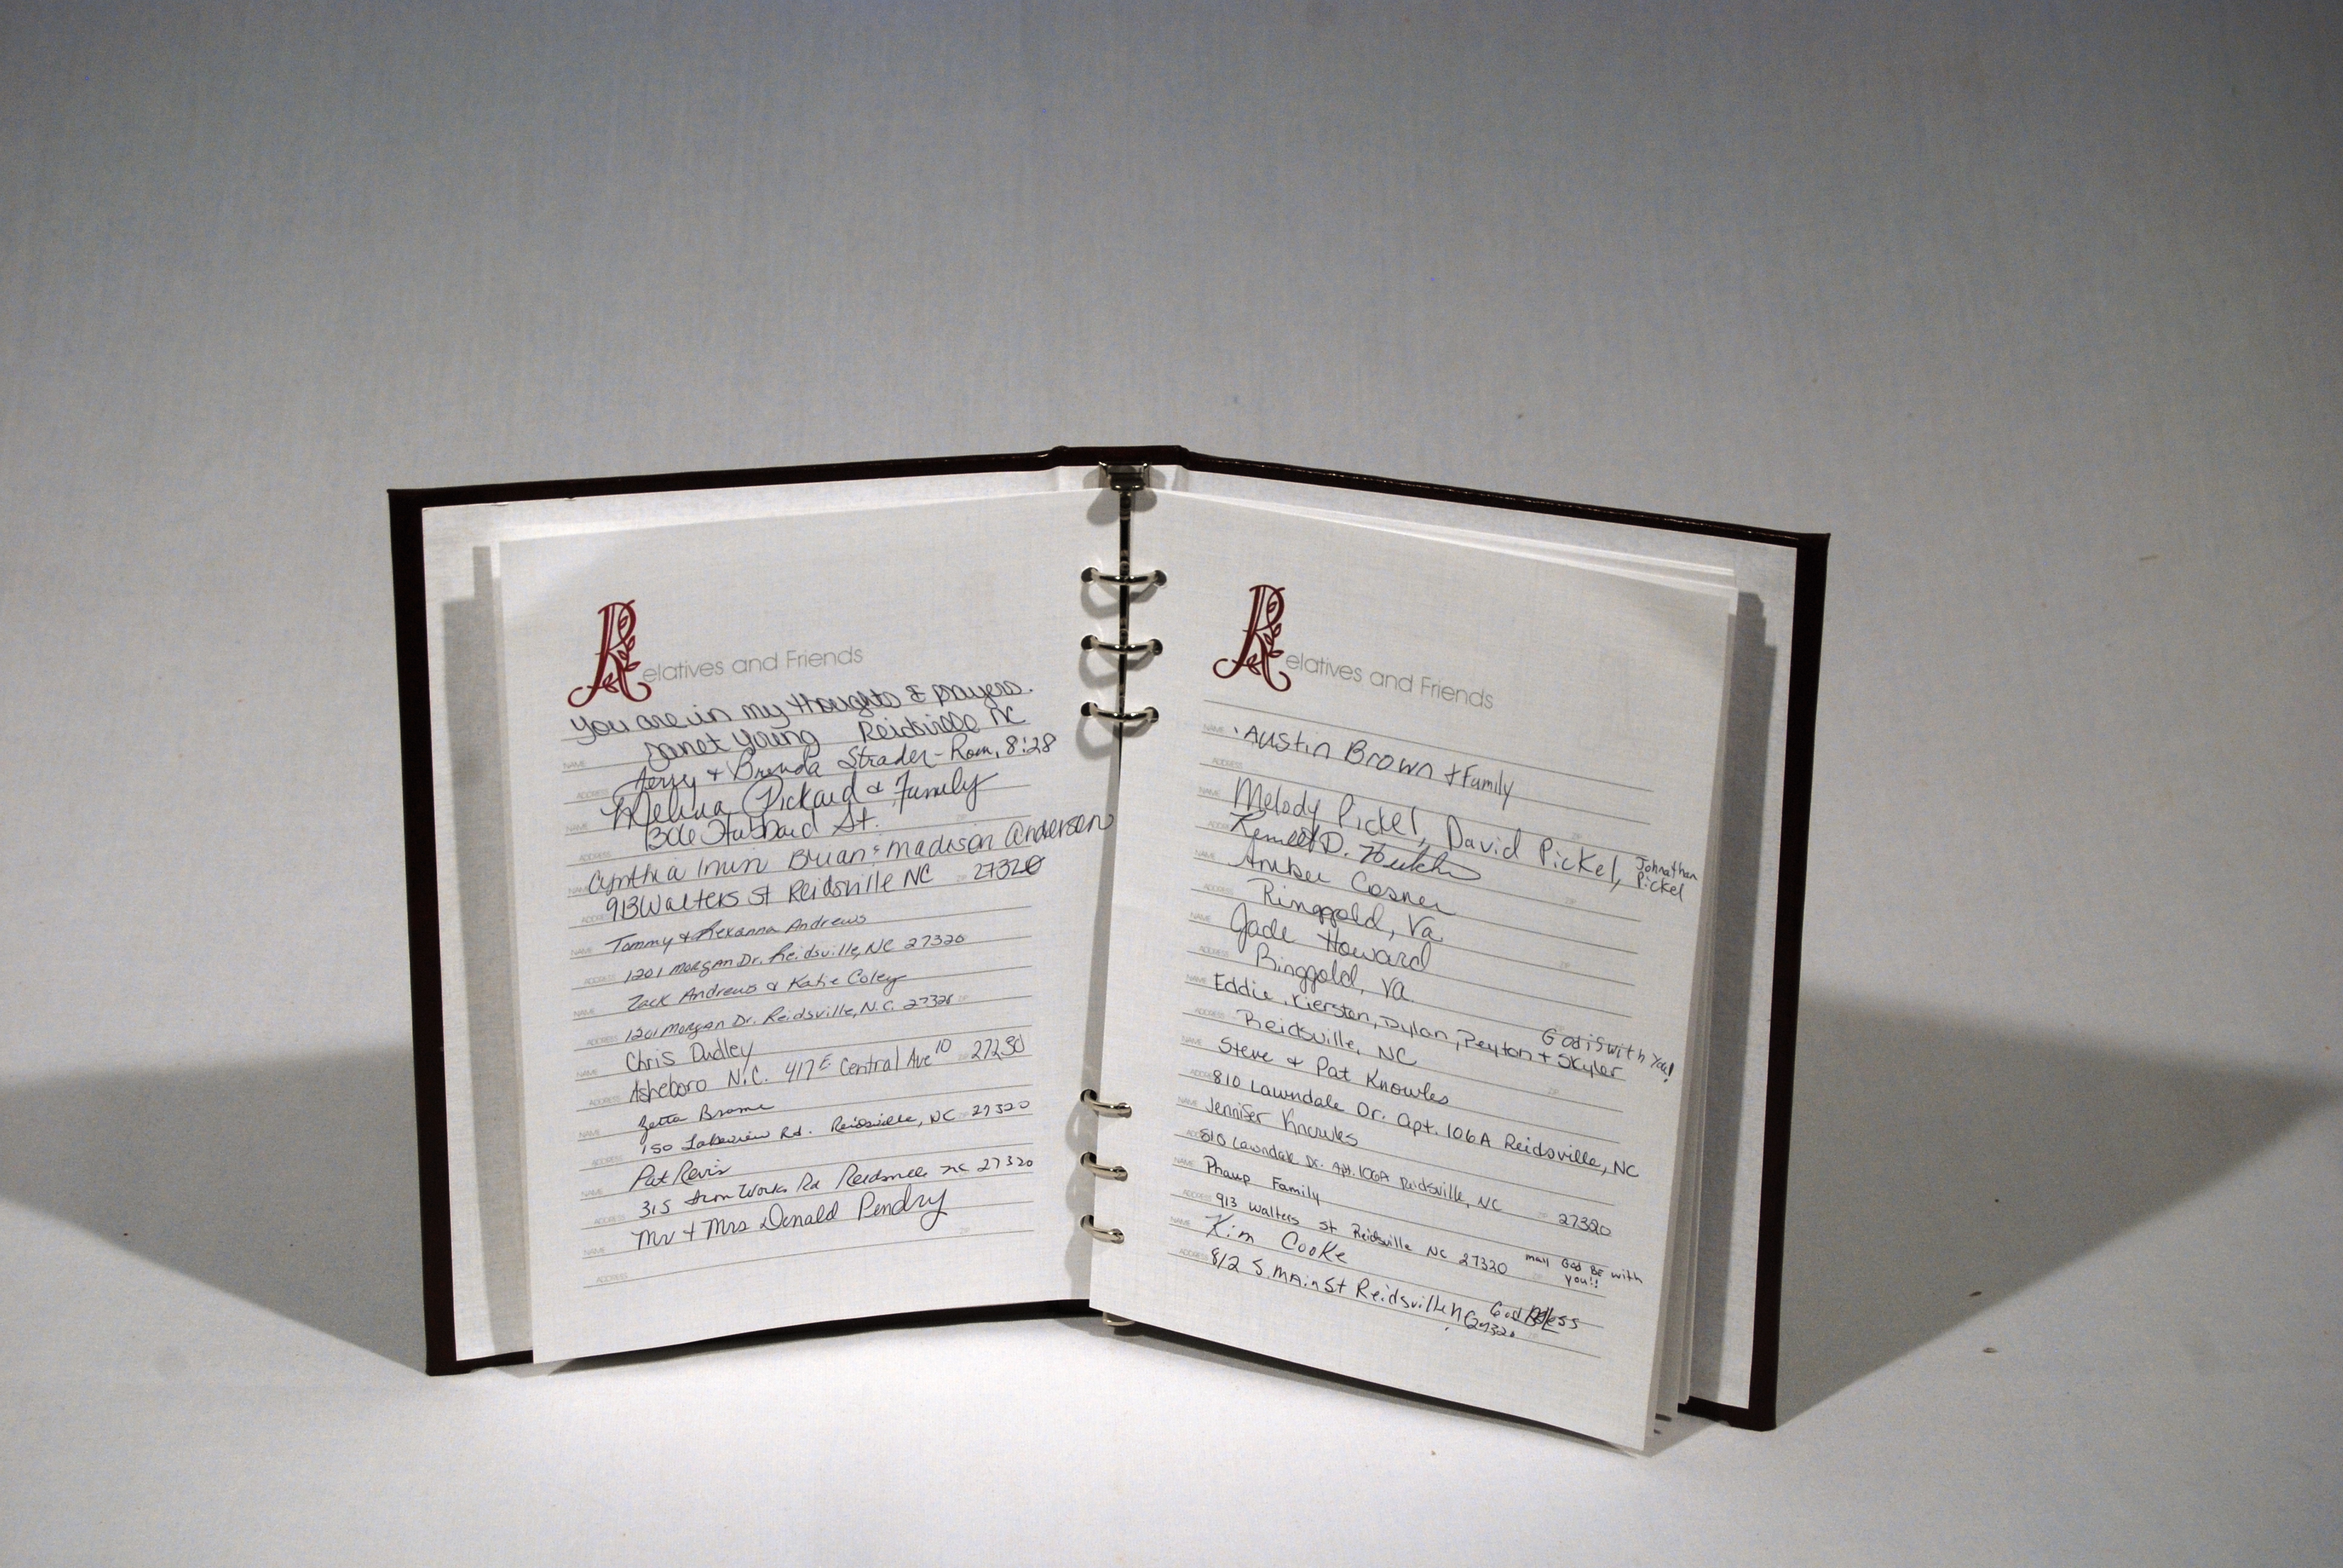 Relatives and Friends
You are in my thoughts & prayers.
Janet Young Reidsville NC
NAME
Jerry & Brenda Strader - Rom. 8:28
ADDRESS
Melissa Pickard & Family
NAME
Hubbard St.
ADDRESS
Cynthia Irvin Brian & Madison Anderson
NAME
913 Walters St Reidsville NC 27320
ADDRESS ZIP
Tommy & Rexanna Andrews
NAME
1201 Morgan Dr. Reidsville, NC 27320
ADDRESS
Zack Andrews & Katie Coley
NAME
1201 Morgan Dr. Reidsville, N.C. 27320
ADDRESS ZIP
Chris Dudley
NAME
Asheboro N.C. 417 E Central Ave 10 27230
ADDRESS ZIP
Zetta Brame
NAME
150 Lakeview Rd. Reidsville, NC 27320
ADDRESS ZIP
Pat Revis
NAME
315 Iron Works Rd Reidsville NC 27320
ADDRESS
Mr & Mrs Donald Pendry
NAME ZIP
ADDRESS
Relatives and Friends
NAME
Austin Brown & Family
ADDRESS
NAME
Melody Pickel, David Pickel, Johnathan Pickel
ADDRESS ZIP
Kenneth D.
NAME
Amber Cosner
ADDRESS ZIP
Ringgold, Va
NAME
Jade Howard
ADDRESS ZIP
Ringgold, Va
NAME
Eddie, Kiersten, Dylan, Peyton & Skyler God is with you!
ADDRESS
Reidsville, NC
NAME ZIP
Steve & Pat Knowles
ADDRESS
810 Lawndale Dr. Apt. 106A Reidsville, NC
NAME
Jennifer Knowles
ADDRESS
810 Lawndale Dr. Apt. 106A Reidsville, NC 27320
NAME ZIP
Phaup Family
ADDRESS
913 Walters St Reidsville NC 27320 may God BE with you!!
NAME ZIP
Kim Cooke
ADDRESS
812 S. Main St Reidsville NC 27320 God Bless
ZIP